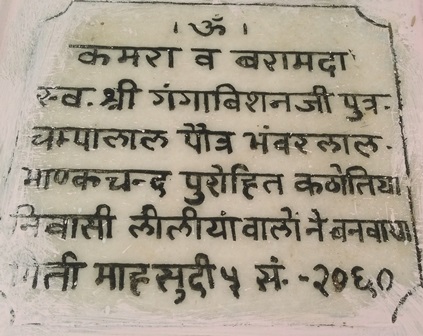 । ॐ ।
कमरा व बरामदा
स्व. श्री गंगाबिशनजी पुत्र-
चम्पालाल पौत्र भंवरलाल-
माणकचन्द पुरोहित कठोतिया
निवासी लीलीयां वालों नै बनवाया
मिती माह सुदी ५ सं. -२०६०